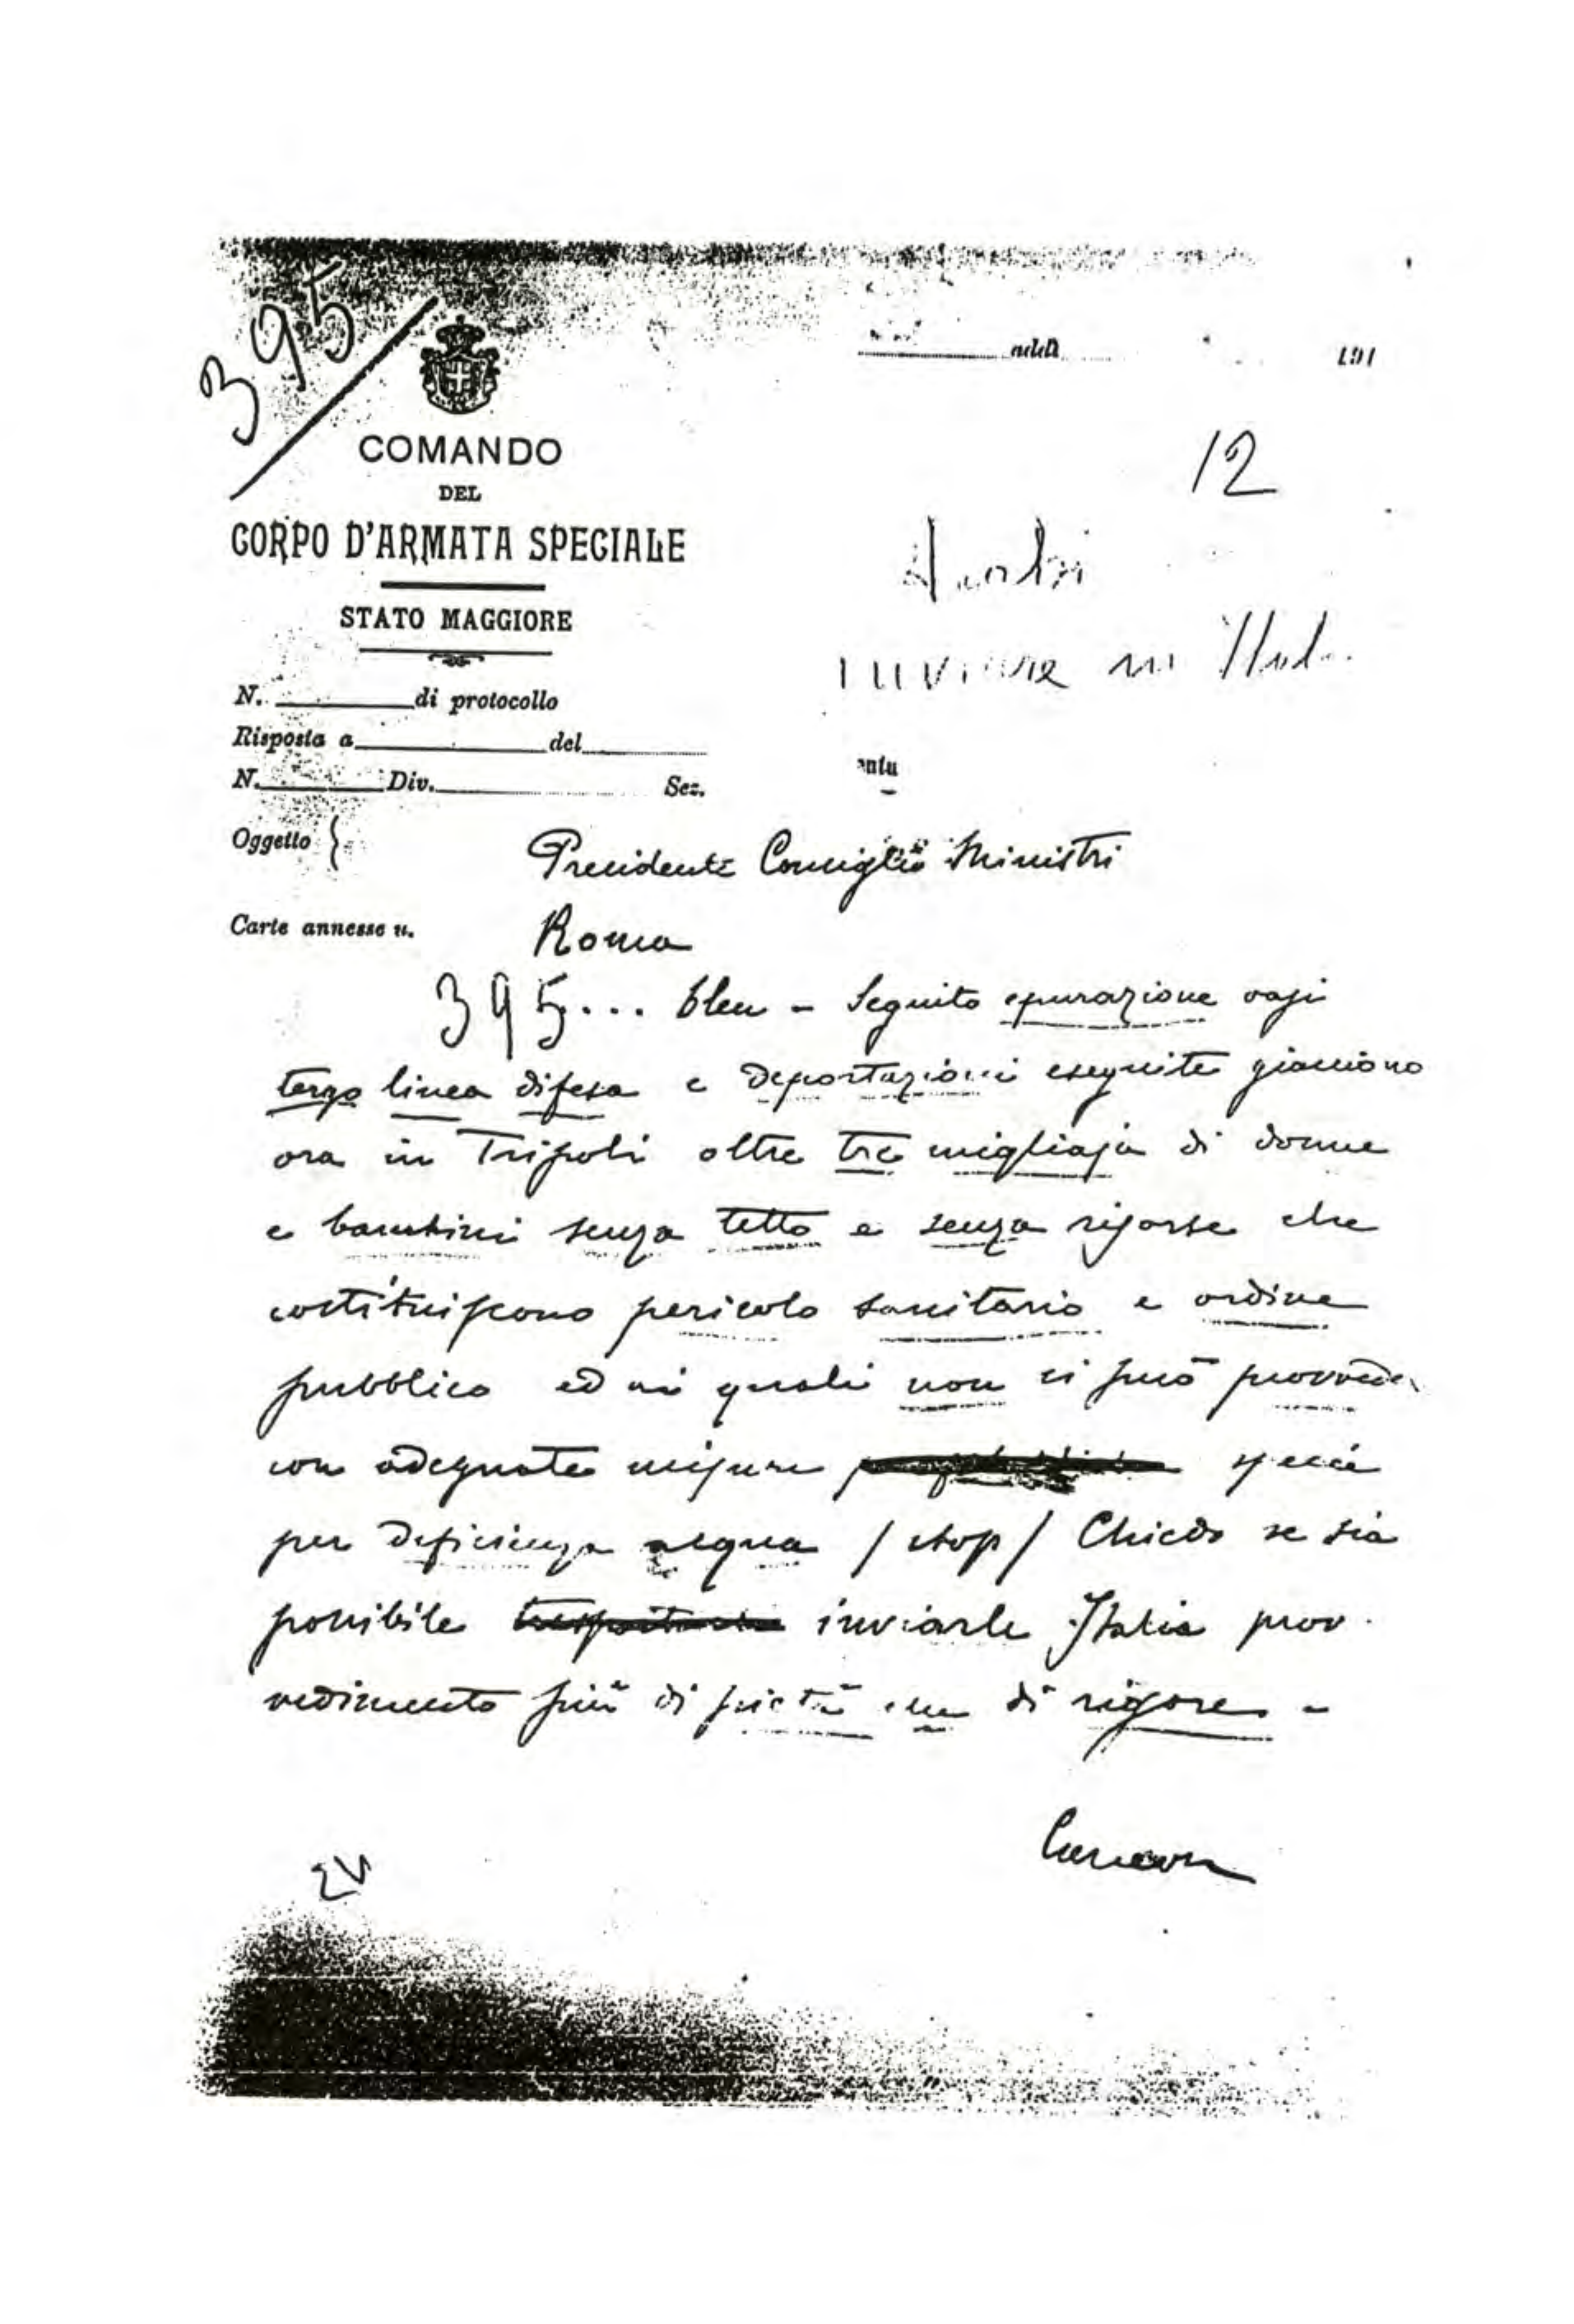 395
addì 191
COMANDO
DEL
CORPO D'ARMATA SPECIALE
STATO MAGGIORE
12
in
N. di protocollo
Risposta a del
N. Div. Sez.
Oggetto
Presidente Consiglio Ministri
Carte annesse n.
Roma
395... bleu - Seguito epurazione oasi
terza linea difesa e deportazioni eseguite giacciono
ora in Tripoli oltre tre migliaja di donne
e bambini senza tetto e senza risorse che
costituiscono pericolo sanitario e ordine
pubblico ed ai quali non si può provveder
con adeguate misure specie
per deficienza acqua / stop / Chiedo se sia
possibile inviarle Italia prov-
vedimento più di pietà che di rigore -